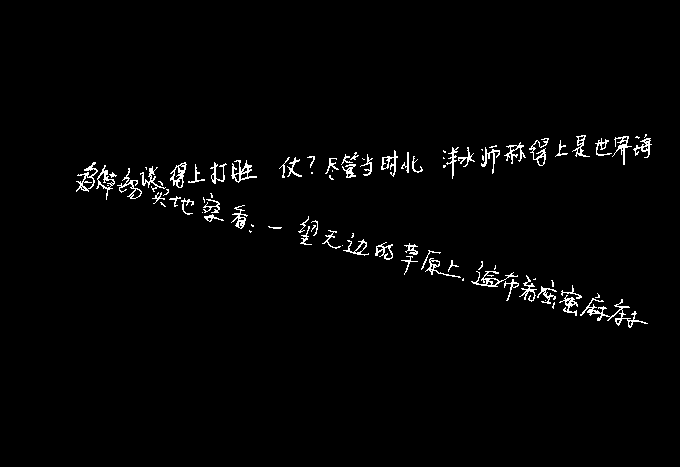 得上打胜仗?尽管当时北洋水师称得上是世界海
实地察看:一望无边的草原上,遍布着密密麻麻